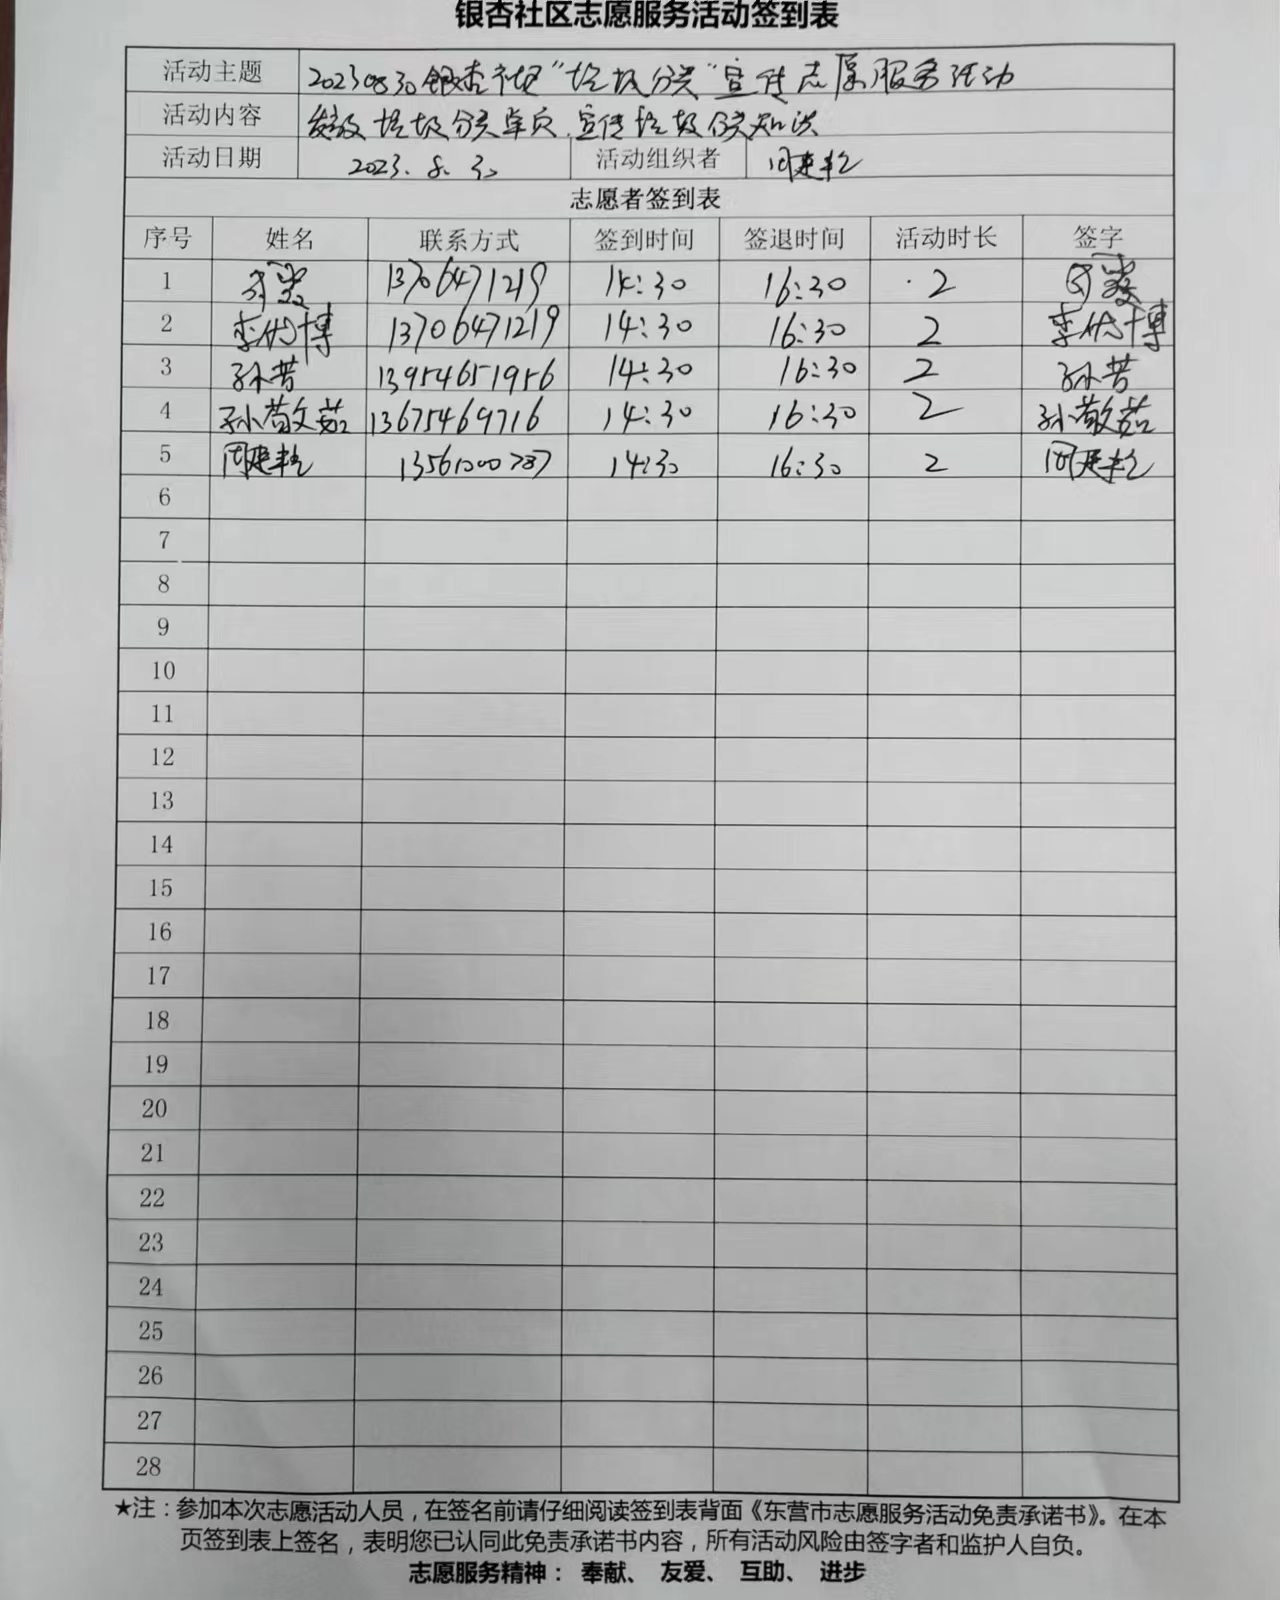 银杏社区志愿服务活动签到表
活动主题 20230830银杏社区“垃圾分类”宣传志愿服务活动
活动内容 发放垃圾分类单页、宣传垃圾分类知识
活动日期 2023.8.30 活动组织者 周建乾
志愿者签到表
序号 姓名 联系方式 签到时间 签退时间 活动时长 签字
1 13706471219 14:30 16:30 2
2 李优博 13706471219 14:30 16:30 2 李优博
3 孙芳 13954651956 14:30 16:30 2 孙芳
4 孙敬茹 13675469716 14:30 16:30 2 孙敬茹
5 周建乾 13561000787 14:30 16:30 2 周建乾
6
7
8
9
10
11
12
13
14
15
16
17
18
19
20
21
22
23
24
25
26
27
28
★注：参加本次志愿活动人员，在签名前请仔细阅读签到表背面《东营市志愿服务活动免责承诺书》。在本
页签到表上签名，表明您已认同此免责承诺书内容，所有活动风险由签字者和监护人自负。
志愿服务精神： 奉献、 友爱、 互助、 进步